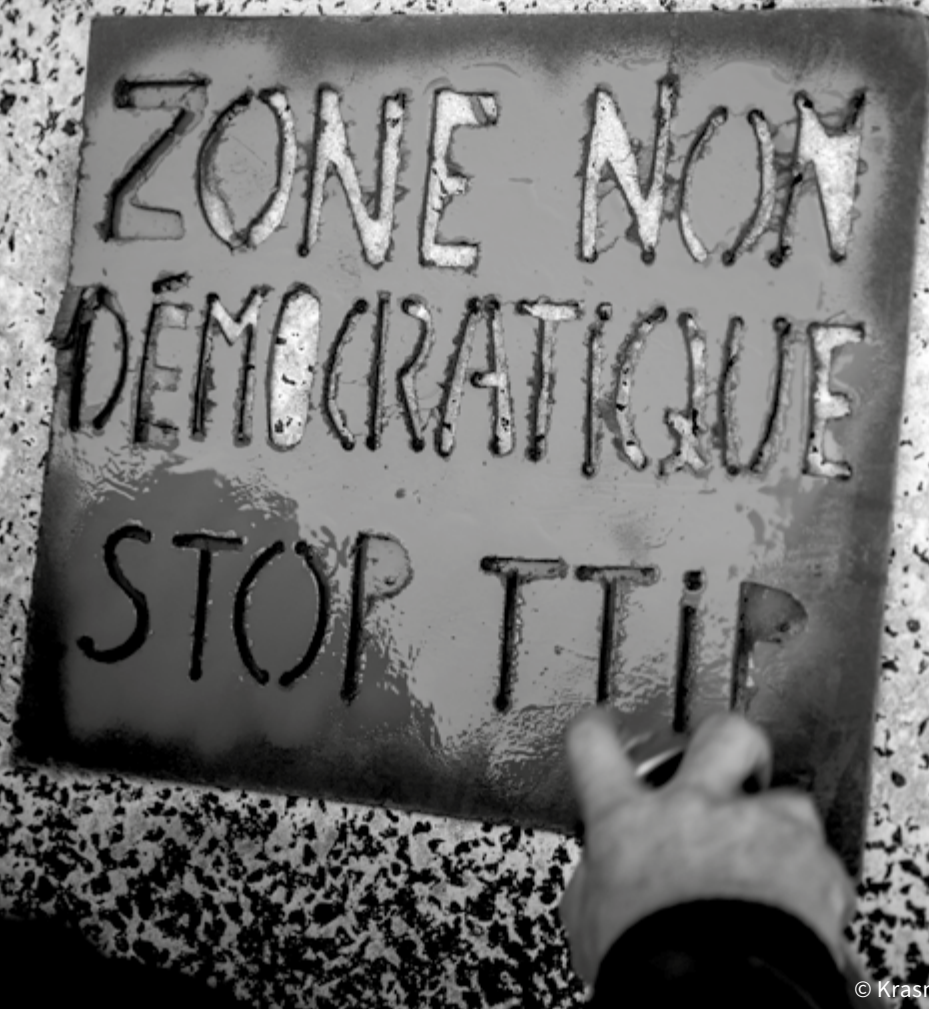 ZONE NON
DÉMOCRATIQUE
STOP TTiP